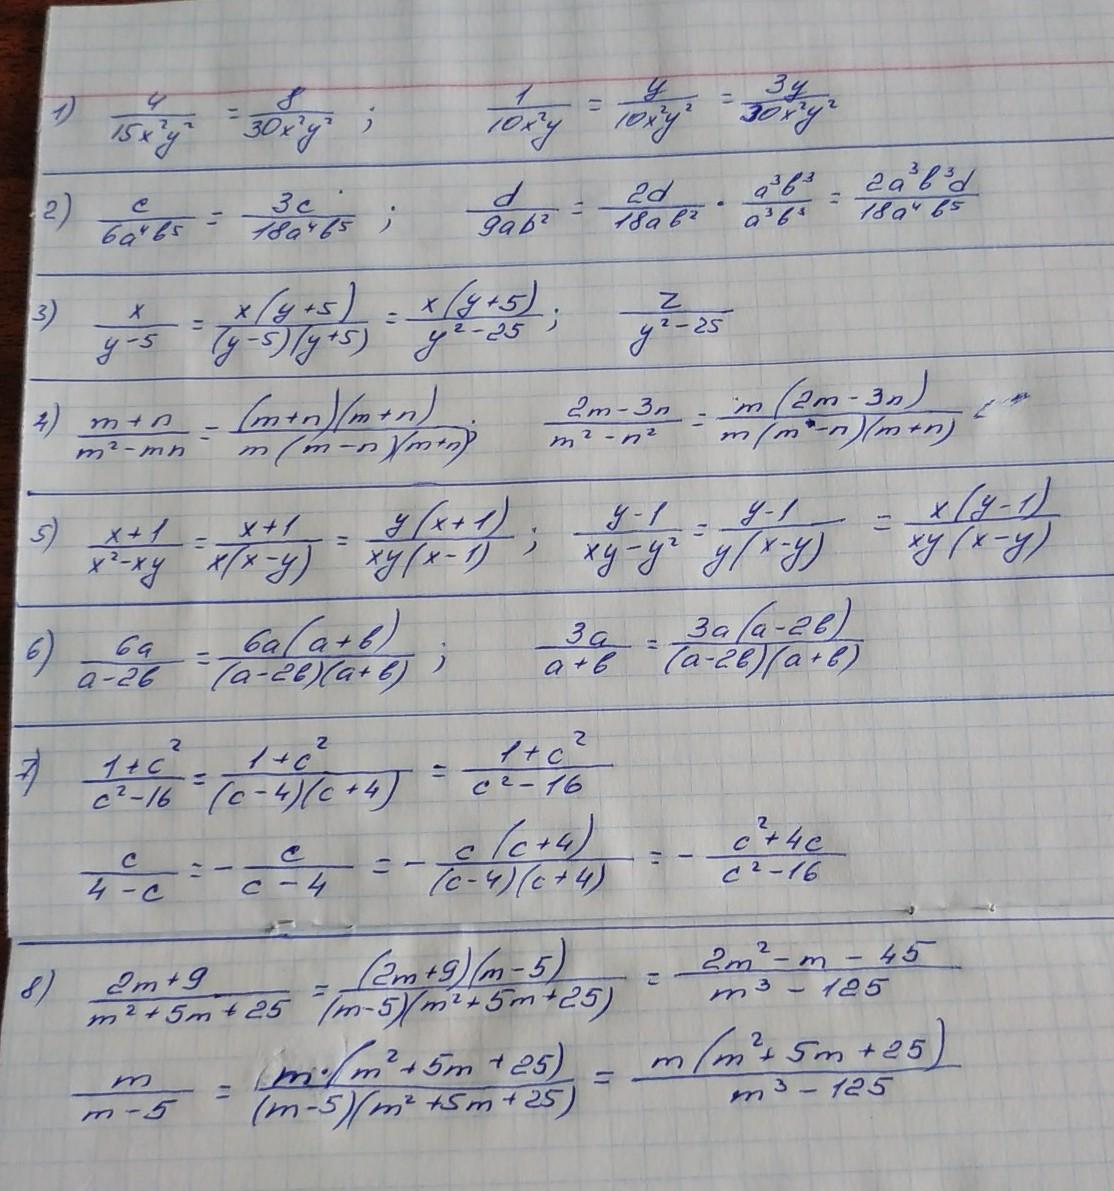 1) 4/(15x²y²) = 8/(30x²y²) ; 1/(10x²y) = y/(10x²y²) = 3y/(30x²y²)
2) c/(6a⁴b⁵) = 3c/(18a⁴b⁵) ; d/(9ab²) = 2d/(18ab²) · a³b³/(a³b³) = 2a³b³d/(18a⁴b⁵)
3) x/(y-5) = x(y+5)/((y-5)(y+5)) = x(y+5)/(y²-25) ; z/(y²-25)
4) (m+n)/(m²-mn) = (m+n)(m+n)/(m(m-n)(m+n)) ; (2m-3n)/(m²-n²) = m(2m-3n)/(m(m-n)(m+n))
5) (x+1)/(x²-xy) = (x+1)/(x(x-y)) = y(x+1)/(xy(x-1)) ; (y-1)/(xy-y²) = (y-1)/(y(x-y)) = x(y-1)/(xy(x-y))
6) 6a/(a-2b) = 6a(a+b)/((a-2b)(a+b)) ; 3a/(a+b) = 3a(a-2b)/((a-2b)(a+b))
7) (1+c²)/(c²-16) = (1+c²)/((c-4)(c+4)) = (1+c²)/(c²-16)
c/(4-c) = - c/(c-4) = - c(c+4)/((c-4)(c+4)) = - (c²+4c)/(c²-16)
8) (2m+9)/(m²+5m+25) = (2m+9)(m-5)/((m-5)(m²+5m+25)) = (2m²-m-45)/(m³-125)
m/(m-5) = m·(m²+5m+25)/((m-5)(m²+5m+25)) = m(m²+5m+25)/(m³-125)